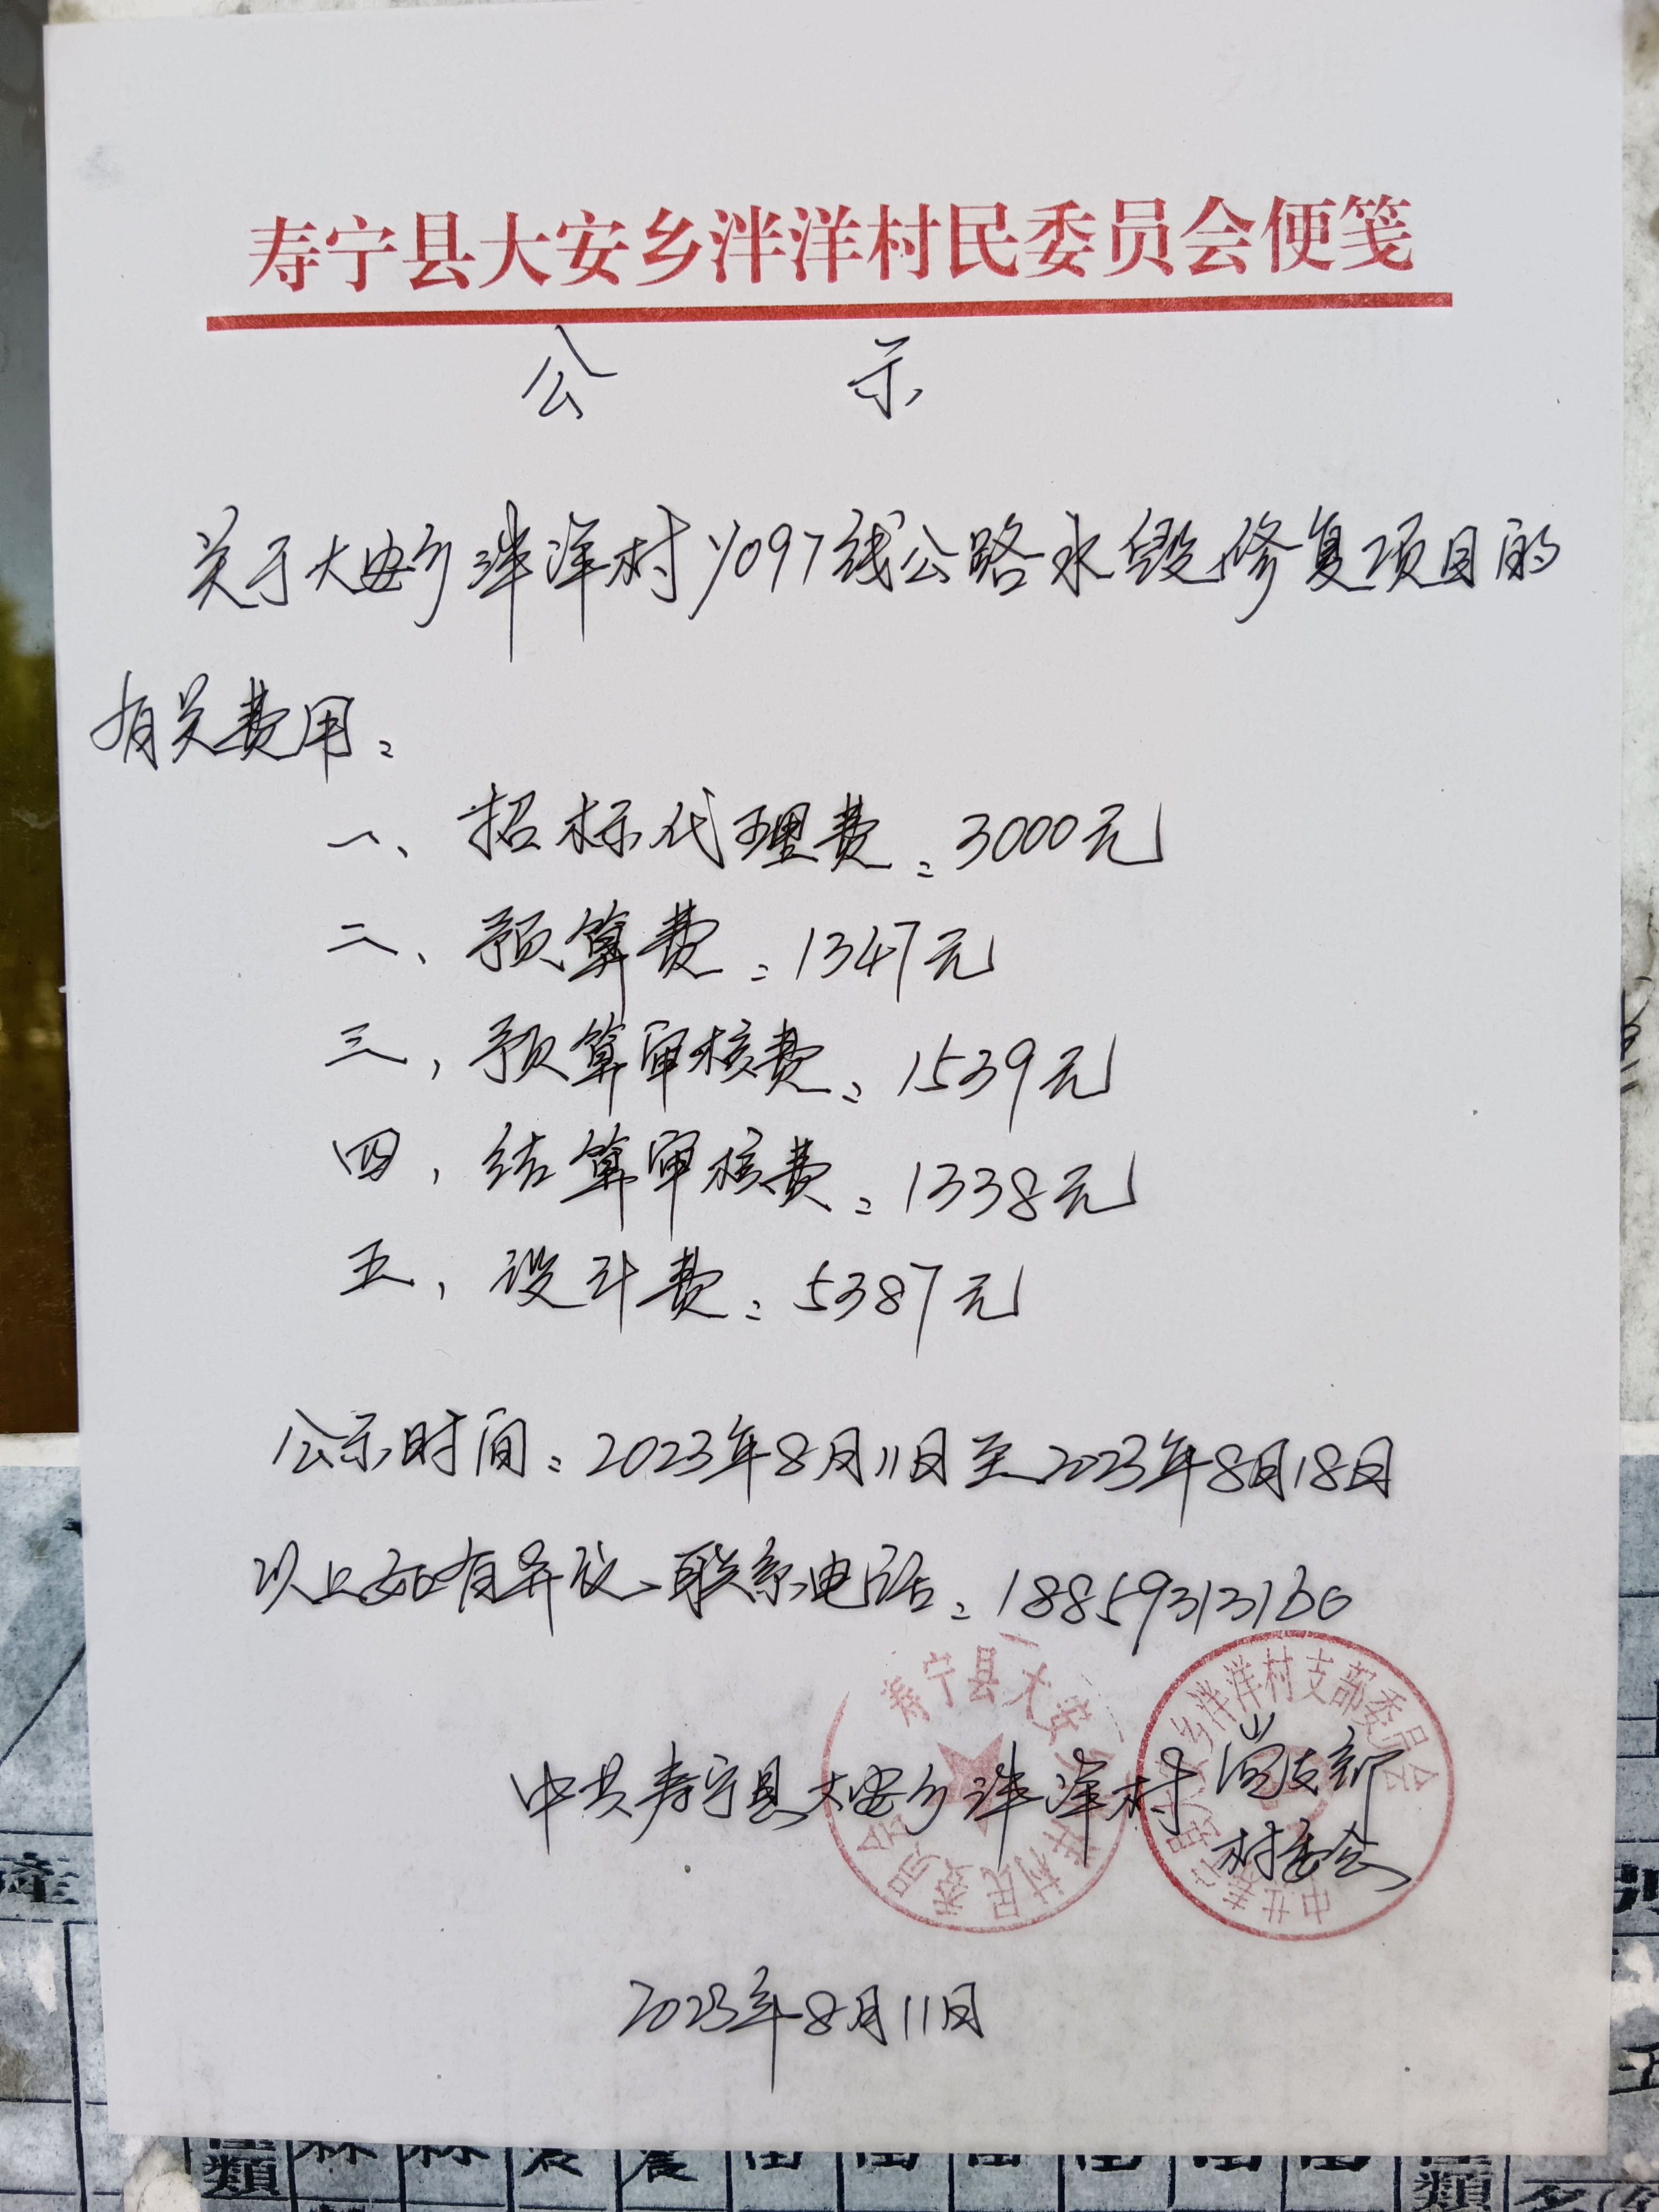 寿宁县大安乡泮洋村民委员会便笺
公示
关于大安乡泮洋村Y097线公路水毁修复项目的
有关费用:
一、招标代理费:3000元
二、预算费:1347元
三、预算审核费:1539元
四、结算审核费:1338元
五、设计费:5387元
公示时间:2023年8月11日至2023年8月18日
以上如有异议、联系电话:18859313160
中共寿宁县大安乡泮洋村党支部
村委会
寿宁县大安乡泮洋村民委员会
中共寿宁县大安乡泮洋村支部委员会
2023年8月11日
產
類
森
森
農
農
田
田
田
田
田
田
類